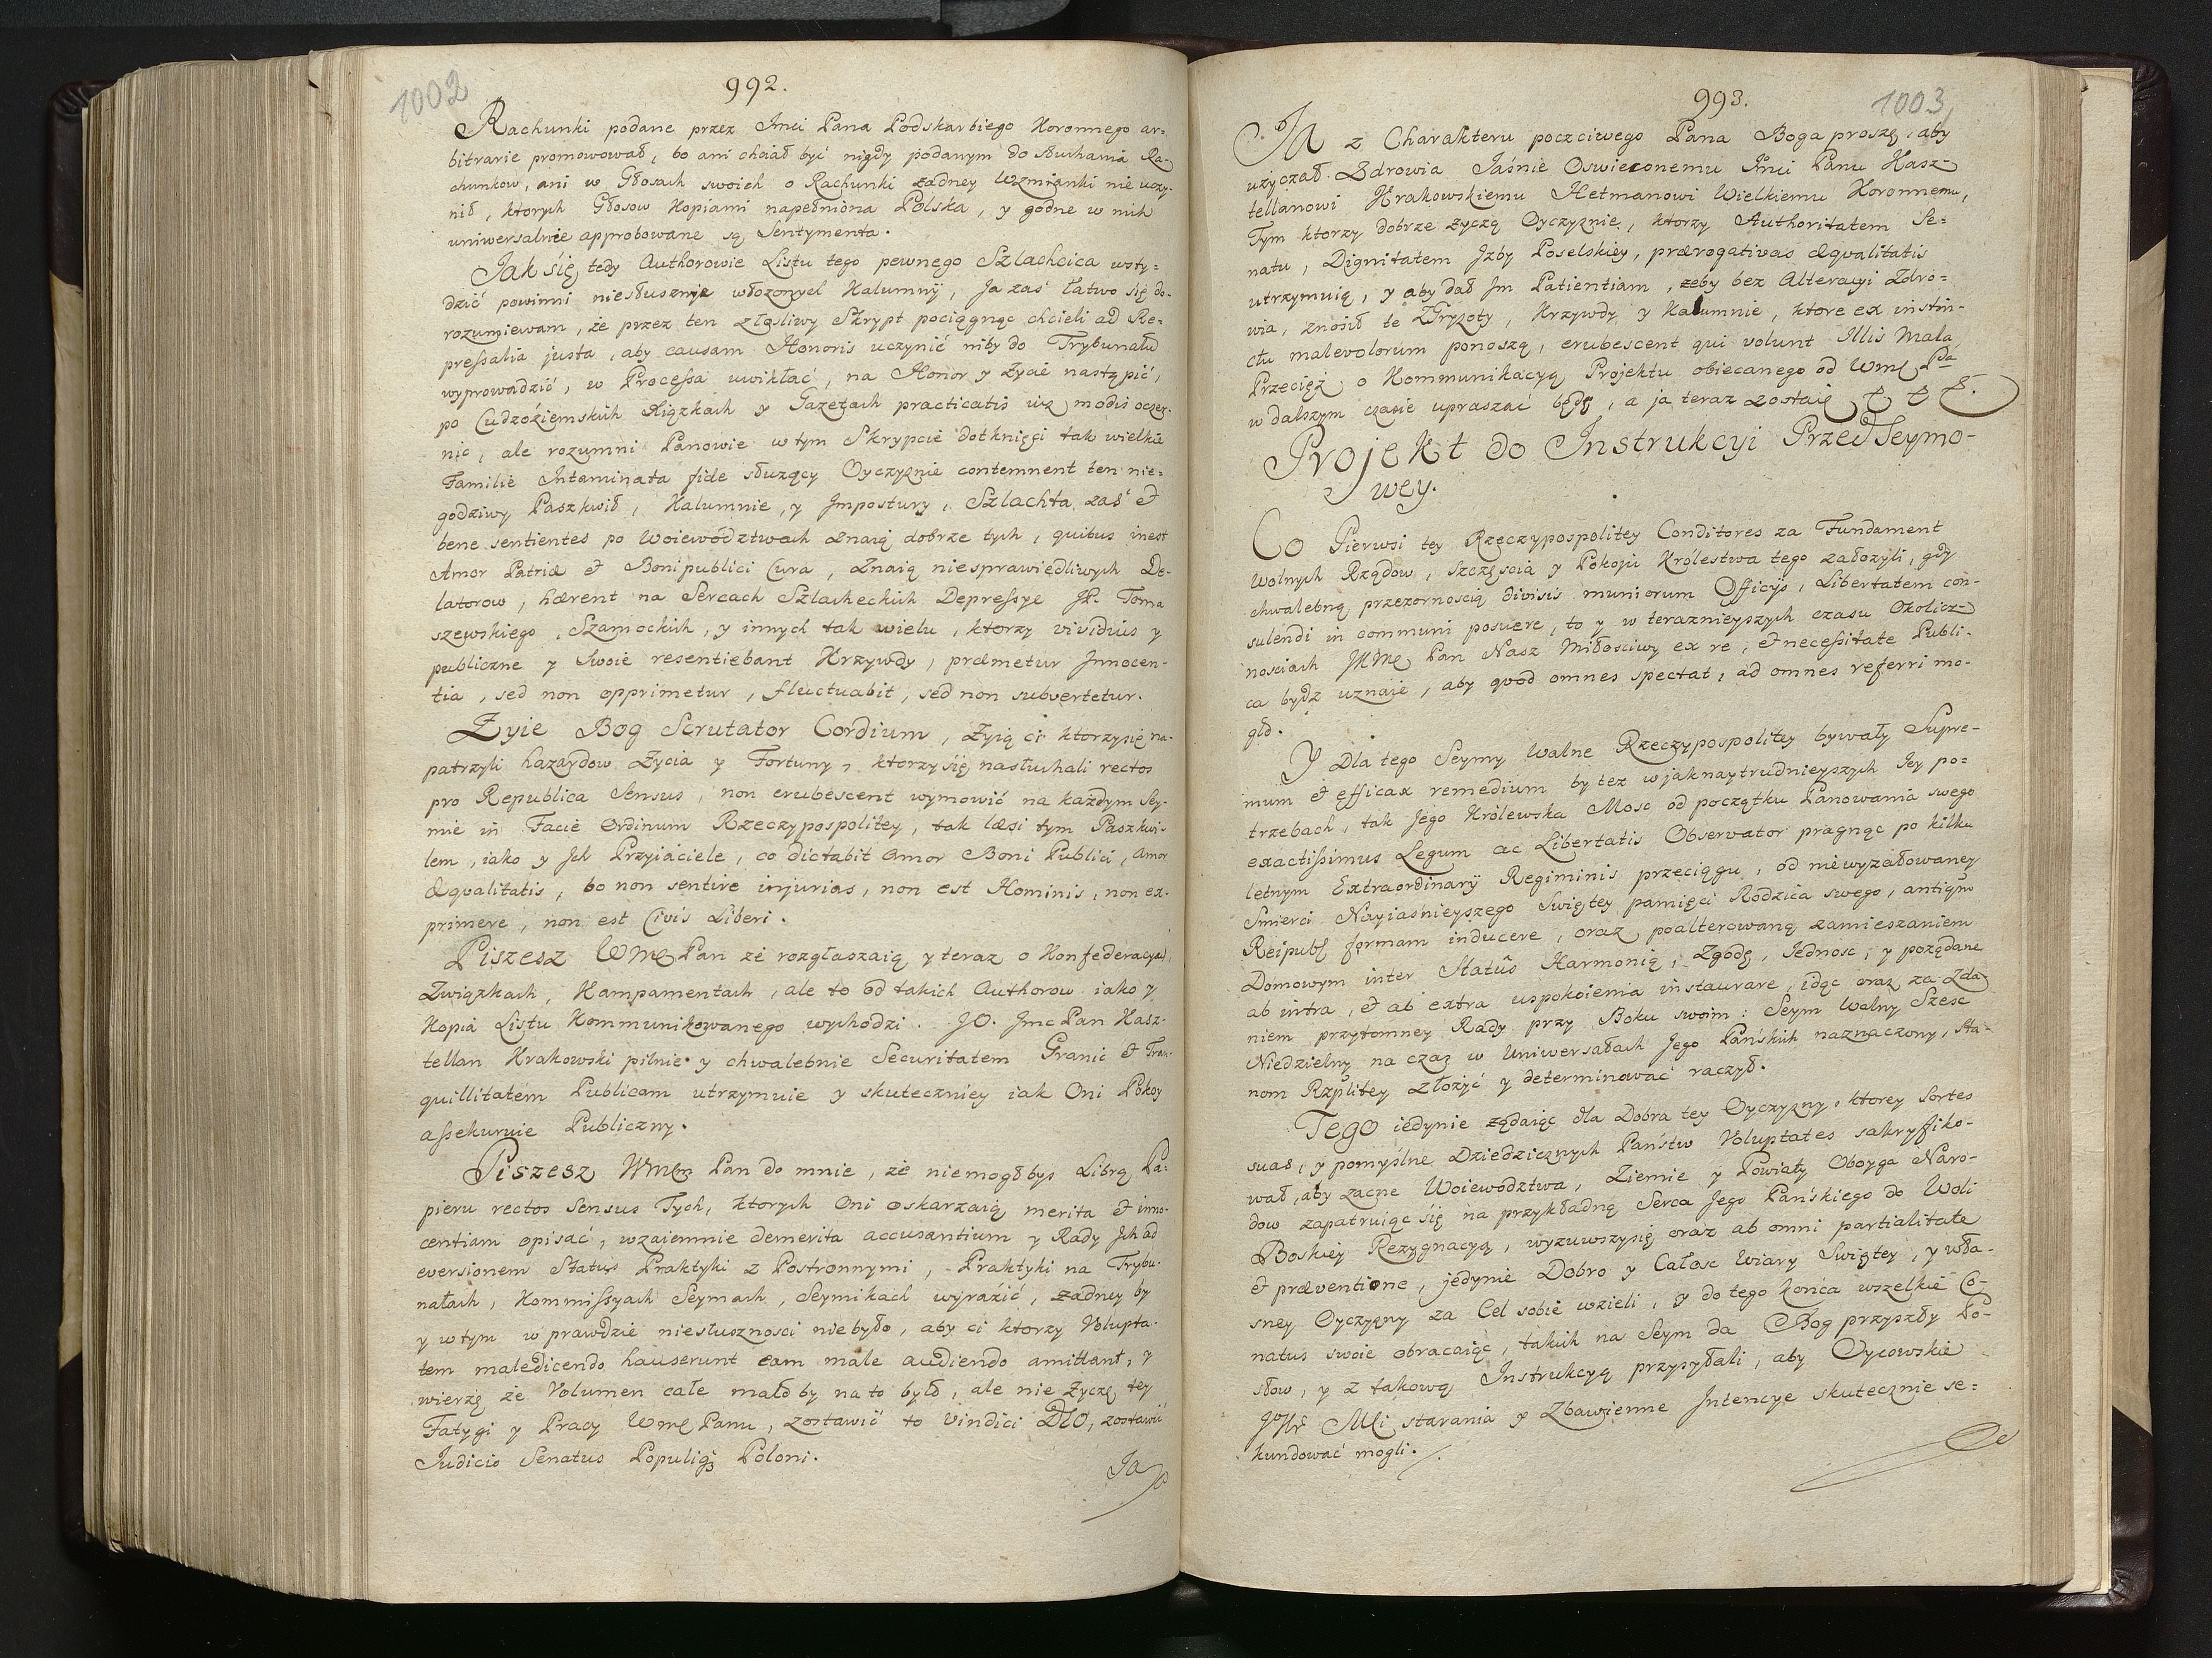 1002
992.
Rachunki podane przez Jmci Pana Podskarbiego Koronnego ar=
bitrarie promowował, bo ani chciał być nigdy podanym do słuchania Ra-
chunkow, ani w Głosach swoich o Rachunki zadney Wzmianki nie uczy-
nił, ktorych Głosow Kopiami napełniona Polska, y godne w nich
uniwersalnie approbowane są Sentymenta.
Jak się tedy Authorowie Listu tego pewnego Szlachcica wsty=
dzić powinni niesłusznie włozonych Kalumnÿ, Ja zaś łatwo się do-
rozumiewam, że przez ten złosliwy Skrypt pociągnąc chcieli ad Re=
pressalia justa, aby causam Honoris uczynić niby do Trybunału
wyprowadzić, w Processa uwikłać, na Honor y Zycie nastąpić,
po Cudzoźiemskich Xiązkach y Gazetach practicatis iuz modis oczer-
nic, ale rozumni Panowie w tym Skrypcie dotknięci tak wielkie
Familie Intaminata fide słuzący Oyczyznie contemnent ten nie=
godziwy Paszkwił, Kalumnie, y Impostury, Szlachta zaś et
bene sentientes po Woiewództwach znaią dobrze tych, quibus inest
Amor Patriæ et Boni publici Cura, Znaią niesprawiedliwych De-
latorow, hærent na Sercach Szlacheckich Depressye JP. Toma
szewskiego, Szamockich, y innych tak wielu, ktorzy vividius y
publiczne y Swoie resentiebant Krzywdy, præmetur Innocen-
tia, sed non opprimetur, fluctuabit, sed non subvertetur.
Zyie Bog Scrutator Cordium, Zyią ci ktorzy się na-
patrzyli hazardow Zycia y Fortuny, ktorzy się nasłuchali rectos
pro Republica Sensus, non erubescent wymowić na kazdym Sey-
mie in Facie Ordinum Rzeczypospolitey, tak læsi tym Paszkwi-
lem, iako y Ich Przyiaciele, co dictabit Amor Boni Publici, Amor
Æqvalitatis, bo non sentire injurias, non est Hominis, non ex-
primere, non est Civis Liberi.
Piszesz Wmę Pan ze rozgłaszaią y teraz o Konfederacyach,
Związkach, Kampamentach, ale to od takich Authorow iako y
Kopia Listu Kommunikowanego wychodzi. JO. Jmc Pan Kasz-
tellan Krakowski pilnie y chwalebnie Securitatem Granic et Tran-
quillitatem Publicam utrzymuie y skuteczniey iak Oni Pokoy
assekuruie Publiczny.
Piszesz Wmę Pan do mnie, ze niemogłbys Librą Pa-
pieru rectos Sensus Tych, ktorych Oni oskarzaią merita et inno-
centiam opisać, wzaiemnie demerita accusantium y Rady Ich ad
eversionem Statûs Praktyki z Postronnymi, Praktyki na Trybu-
nałach, Kommissyach Seymach, Seymikach wyrazić, zadney by
y w tym w prawdzie niesłusznosci nie było, aby ci ktorzy Volupta-
tem maledicendo hauserunt eam male audiendo amittant, y
wierzę że Volumen całe mało by na to było, ale nie Zyczę tey
Fatygi y Pracy Wmę Panu, zostawić to Vindici DEO, zostawić
Judicio Senatus Populiq3 Poloni.
Ja
993.
1003
JA z Charakteru poczciwego Pana Boga proszę, aby
uzyczał Zdrowia Jaśnie Oswieconemu Jmci Panu Kasz-
tellanowi Krakowskiemu Hetmanowi Wielkiemu Koronnemu,
Tym ktorzy dobrze zyczą Oyczyznie, ktorzy Authoritatem Se=
natu, Dignitatem Izby Poselskiey, prærogativas æqvalitatis
utrzymuią, y aby dał Im Patientiam, zeby bez Alteracyi Zdro-
wia, znosił te Zgryzoty, Krzywdy y Kalumnie, ktore ex instin-
ctu malevolorum ponoszą, erubescent qui volunt Illis Mala
Przecięż o Kommunikacyą Projektu obiecanego od Wmę Pa
w dalszym czasie upraszać będę, a ja teraz zostaię & & &.
Projekt do Instrukcyi PrzedSeymo-
wey.
Co Pierwsi tey Rzeczypospolitey Conditores za Fundament
Wolnych Rządow, Szczęscia y Pokoju Królestwa tego założyli, gdy
chwalebną przezornoscią divisis muniorum Officÿs, Libertatem con-
sulendi in communi posuere, to y w teraznieyszych czasu Okolicz-
nosciach JKMę Pan Nasz Miłosciwy ex re, et necessitate Publi-
ca bydz uznaje, aby qvod omnes spectat, ad omnes referri mo-
gło.
Y Dla tego Seymy Walne Rzeczypospolitey bywały Supre-
mum et efficax remedium by tez w jaknaytrudnieyszych Jey po=
trzebach, tak Jego Królewska Mosc od początku Panowania swego
exactissimus Legum ac Libertatis Observator pragnąc po kilku
letnym Extraordinarÿ Regiminis przeciągu, od niewyzałowaney
Smierci Nayiaśnieyszego Swiętey pamięci Rodzica swego, antiquam
Reipubl formam inducere, oraz poalterowaną zamieszaniem
Domowym inter Status Harmonią, Zgodę, Jednosc, y poządane
ab intra, et ab extra uspokoienia instaurare, idąc oraz za Zda-
niem przytomney Rady przy Boku swoim: Seym Walny Szesc
Niedzielny na czas w Uniwersałach Jego Pańskich naznaczony, Sta-
nom Rzplitey złożyć y determinować raczył.
Tego iedynie ządaiąc dla Dobra tey Oyczyzny, ktorey Sortes
suas, y pomyślne Dziedzicznych Państw Voluptates sakryfiko-
wał, aby zacne Woiewodztwa, Ziemie y Powiaty Oboyga Naro-
dow zapatruiąc się na przykładną Serca Jego Pańskiego do Woli
Boskiey Rezygnacyą, wyzuwszysię oraz ab omni partialitate
et præventione, jedynie Dobro y Całosc Wiary Swiętey, y wła-
sney Oyczyzny za Cel sobie wzieli, y do tego końca wszelkie Co-
natus swoie obracaiąc, takich na Seym da Bog przyszły Po-
słow, y z takową Instrukcyą przysyłali, aby Oycowskie
JoKr Mci starania y Zbawienne Intencye skutecznie se=
kundować mogli.